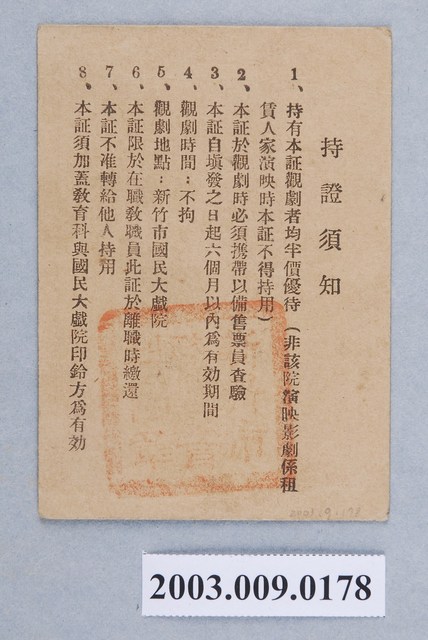 持證須知
1、持有本証觀劇者均半價優待（非該院演映影劇係租
賃人家演映時本証不得持用）
2、本証於觀劇時必須携帶以備售票員查驗
3、本証自填發之日起六個月以內爲有効期間
4、觀劇時間：不拘
5、觀劇地點：新竹市國民大戲院
6、本証限於在職教職員此証於離職時繳還
7、本証不准轉給他人持用
8、本証須加蓋敎育科與國民大戲院印鈐方爲有効
2003.009.0178